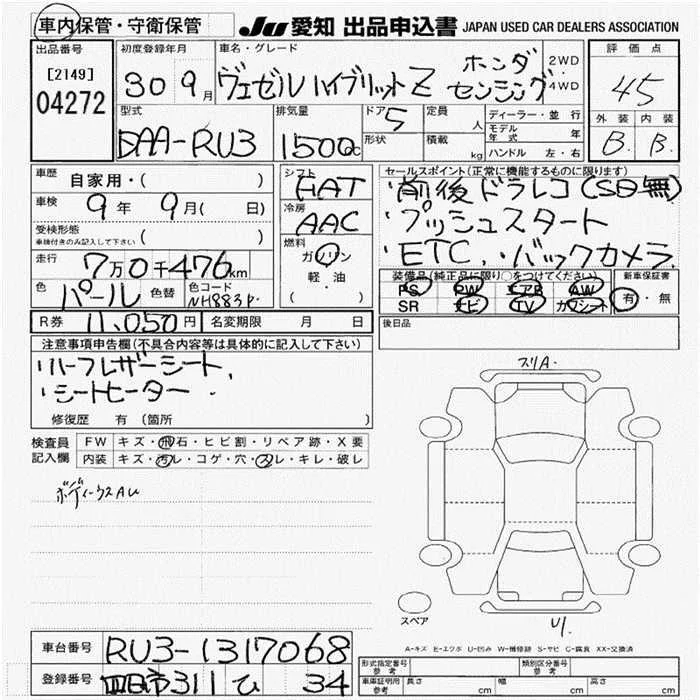 車内保管・守衛保管
JU 愛知 出品申込書 JAPAN USED CAR DEALERS ASSOCIATION
出品番号
[2149]
04272
初度登録年月
30 9月
車名・グレード
ヴェゼルハイブリットZ ホンダセンシング
2WD
・
4WD
評価点
4.5
外装 内装
B. B.
型式
DAA-RU3
排気量
1500cc
ドア 5
形状
定員 人
積載 kg
ディーラー・並行
モデル年式 年
ハンドル 左・右
車歴 自家用・( )
車検 9年 9月( 日)
受検形態
車検付きのみ記入して下さい ( )
走行 7万0千476km
色 パール
色替
色コード
NH883P.
シフト
HAT
冷房
AAC
燃料
ガソリン
軽・油
( )
セールスポイント(正常に機能するものに限ります)
・前後ドラレコ(SD無)
・プッシュスタート
・ETC. ・バックカメラ
装備品(純正品に限り○をつけてください)
PS PW エアB AW
SR ナビ TV カワシート
新車保証書
有・無
R券 11,050円
名変期限 月 日
後日品
注意事項申告欄(不具合内容等は具体的に記入して下さい)
・ハーフレザーシート.
・シートヒーター.
修復歴 有(箇所 )
検査員
記入欄
FW キズ・飛石・ヒビ割・リペア跡・X要
内装 キズ・汚レ・コゲ・穴・スレ・キレ・破レ
スリA.
U1.
スペア
A-キズ E-エクボ U-凹み W-補修跡 S-サビ C-腐食 XX-交換済
車台番号 RU3-1317068
登録番号 四日市311 ひ 34
形式指定番号
参考
類別区分番号
参考
車庫証明用
参考
長さ cm
幅 cm
高さ cm